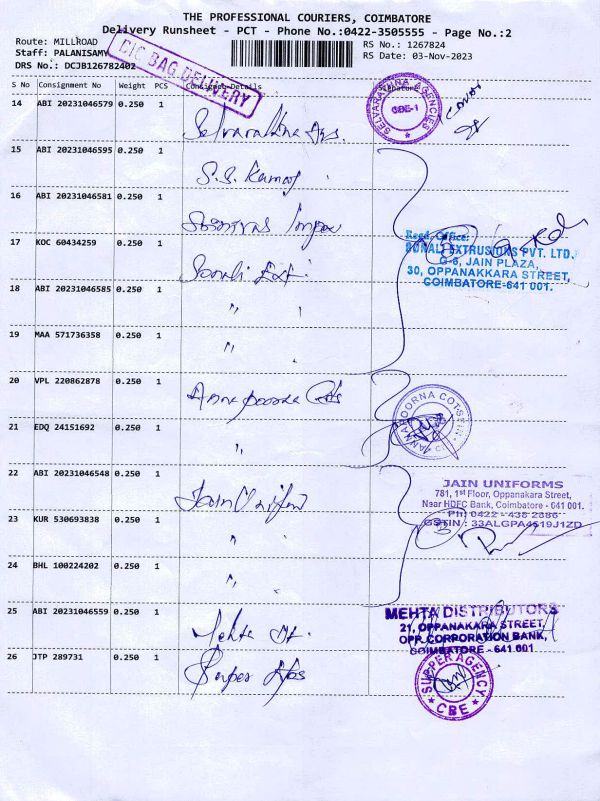 THE PROFESSIONAL COURIERS, COIMBATORE
Delivery Runsheet - PCT - Phone No.:0422-3505555 - Page No.:2
Route: MILLROAD
RS No.: 1267824
Staff: PALANISAMY
RS Date: 03-Nov-2023
DRS No.: DCJB126782402
CIC BAG DELIVERY
S No Consignment No Weight PCS Consignee Details Signature
14 ABI 20231046579 0.250 1
SELVARATHNA AGENCIES
CBE-1
15 ABI 20231046595 0.250 1 S.S. Kamaj
16 ABI 20231046581 0.250 1
17 KOC 60434259 0.250 1 Sonali Ext.
Regd. Office:
SONALI EXTRUSIONS PVT. LTD.
G-6, JAIN PLAZA,
30, OPPANAKKARA STREET,
COIMBATORE-641 001.
18 ABI 20231046585 0.250 1 "
19 MAA 571736358 0.250 1 "
20 VPL 220862878 0.250 1 Annapoorna Cots
ANNAPOORNA COTS
21 EDQ 24151692 0.250 1 "
22 ABI 20231046548 0.250 1 Jain Uniform
JAIN UNIFORMS
781, 1st Floor, Oppanakara Street,
Near HDFC Bank, Coimbatore - 641 001.
Ph: 0422 - 438 2386
GSTIN : 33ALGPA4519J1ZD
23 KUR 530693838 0.250 1 "
24 BHL 100224202 0.250 1 "
25 ABI 20231046559 0.250 1 Mehta Dt.
MEHTA DISTRIBUTORS
21, OPPANAKARA STREET,
OPP. CORPORATION BANK,
COIMBATORE - 641 001.
26 JTP 289731 0.250 1 Super
SUPPER AGENCY
CBE